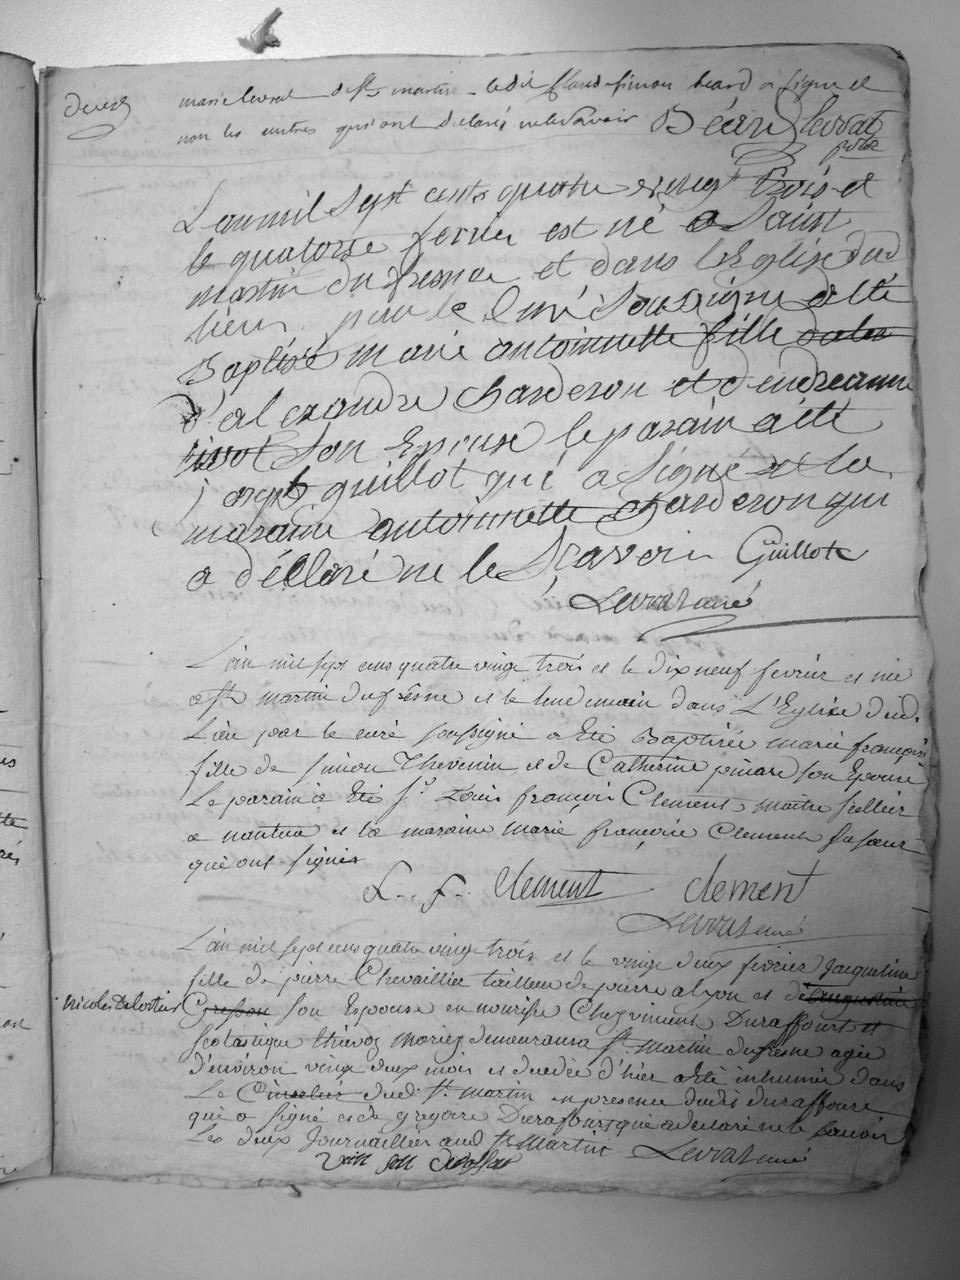 marie levrat de st martin ledit Claude Simon beard a signé et
non les autres qui ont declarés ne le savoir Béard Levrat
curé
L'an mil sept cents quatre vingt trois et
le quatorse fevrier est né a Saint
martin du fresne et dans l'Eglise dud
lieu par le curé soussigné a été
Baptisé marie antoinnette fille
d'alexandre Charderon et d'andreanne
rivot son Epouse le parain a été
joseph guillot qui a signé et la
maraine antoinnette Charderon qui
a déClaré ne le Scavoir Guillot
Levrat curé
L'an mil sept cens quatre vingt trois et le dix neuf fevrier est née
a st martin du fresne et le lendemain dans L'Eglise dud.
Lieu par le curé soussigné a Eté Baptisée marie françoise
fille de simon Thevenin et de Catherine pinard son Epouse
Le parain a Eté Sr Louis françois Clement maître sellier
a nantua et la maraine marie françoise Clement sa sœur
qui ont signés
L. F. Clement Clement
Levrat curé
L'an mil sept cens quatre vingt trois et le vingt deux fevrier Jacqueline
fille de pierre Chevaillier tailleur de pierre a lyon et de
son Epouse en nourisse Chez vincent Duraffourt et
scolastique thievoz mariez demeurants st Martin du fresne agée
d'environ vingt deux mois et decedée d'hier a été inhumée dans
Le Cimetiér dud. st martin en presence dudit duraffourt
qui a signé et de gregoire Duraffourt qui a declaré ne le savoir
Les deux Journaillier aud st Martin Levrat curé